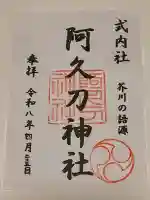 式内社
芥川の語源
阿久刀神社
奉拝
令和八年四月二五日